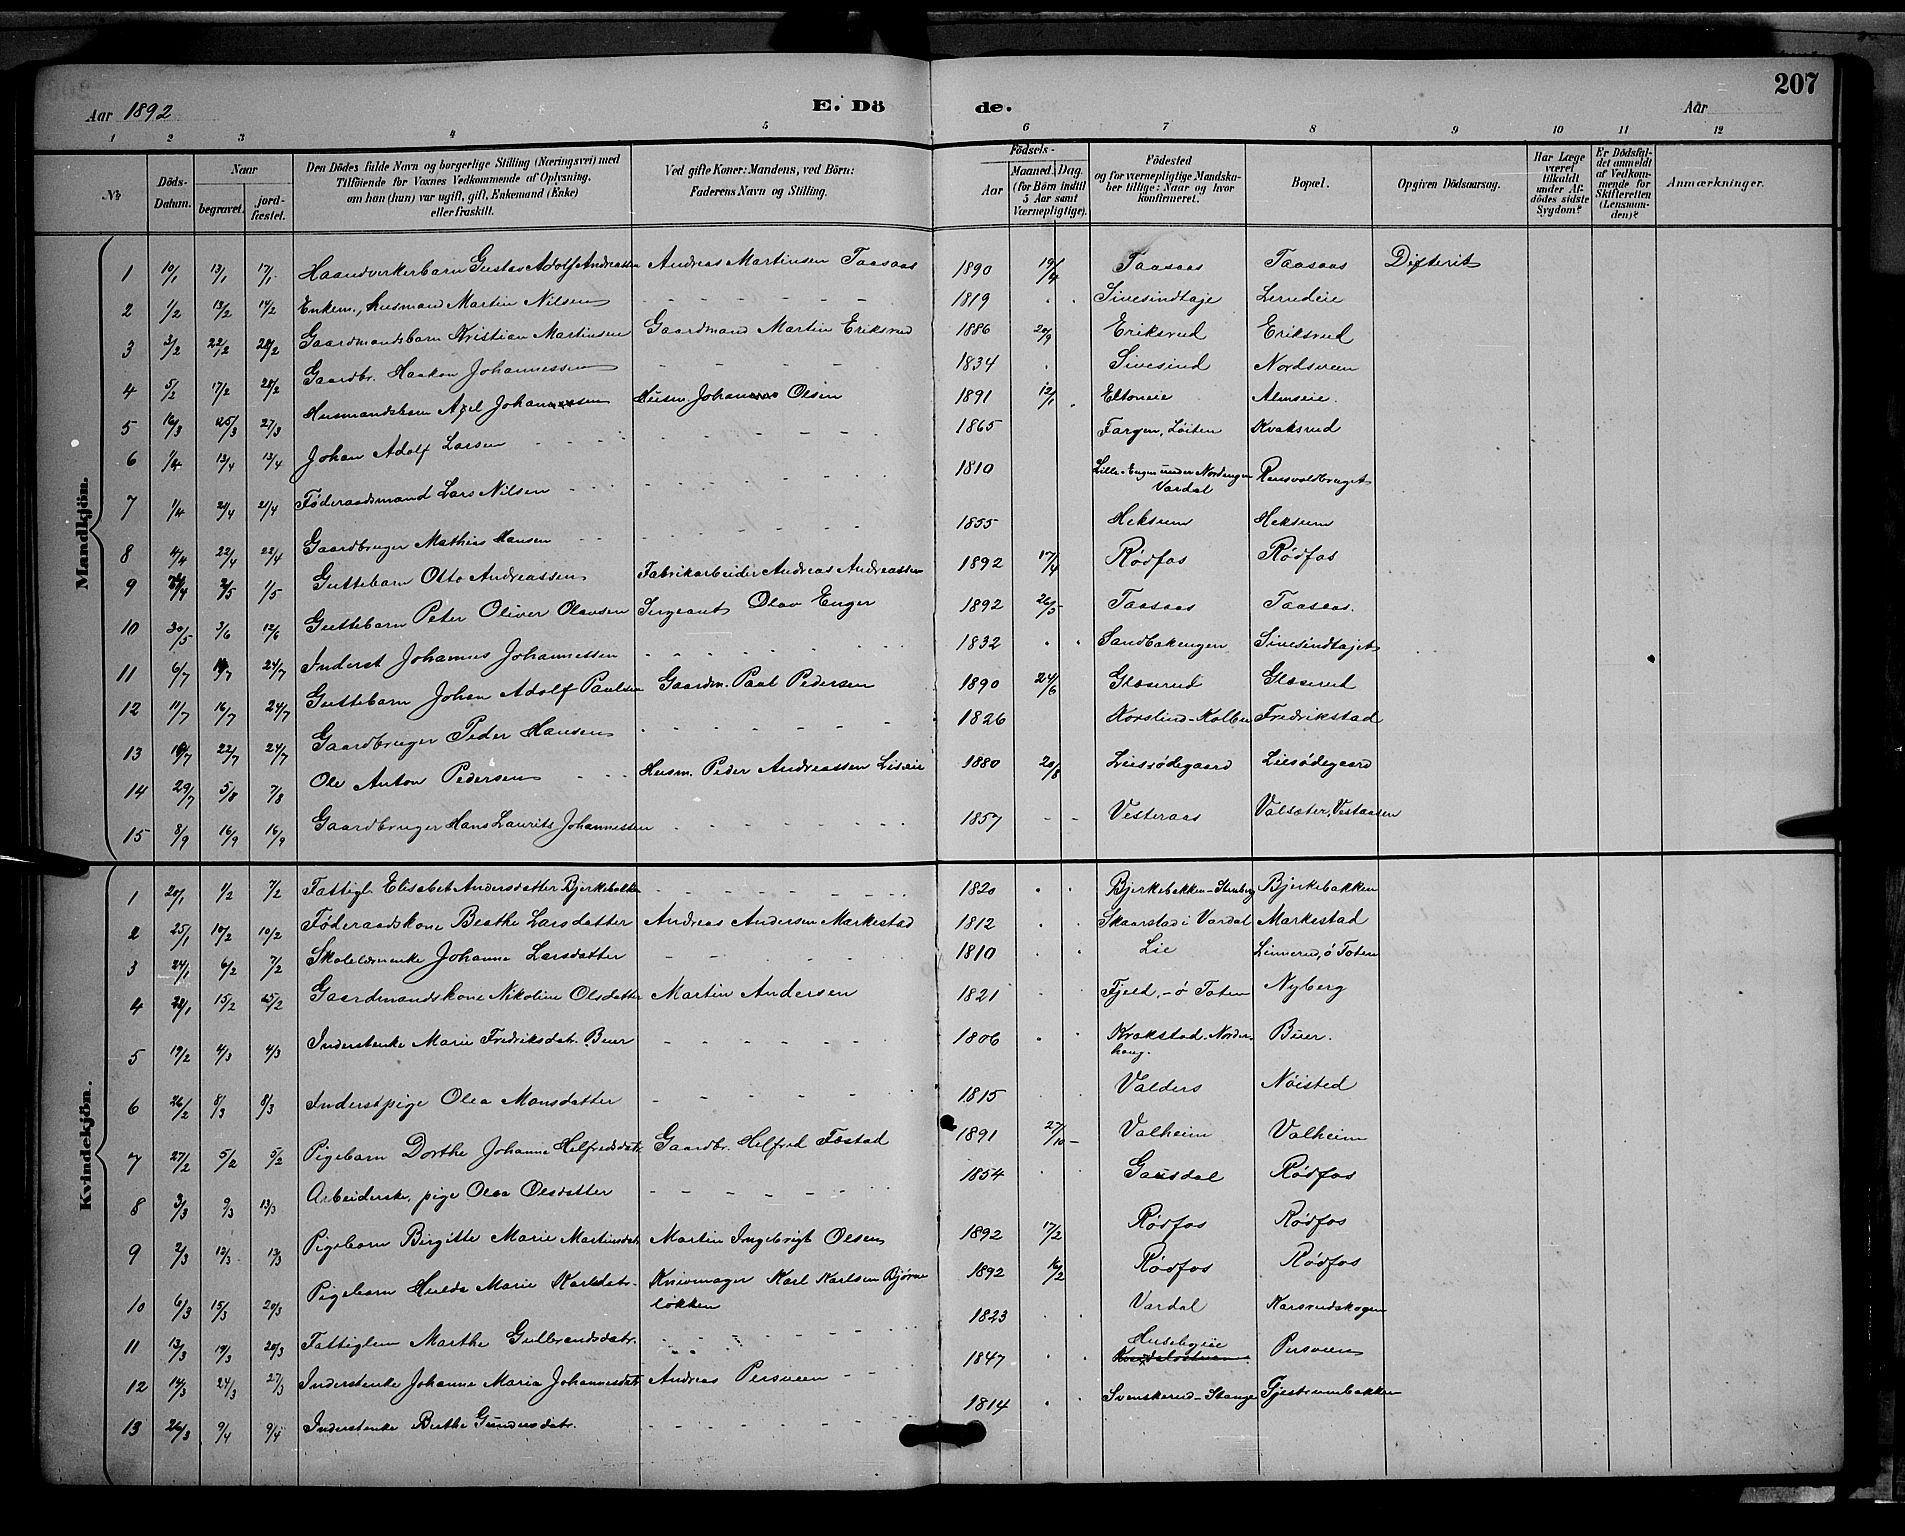 207
Aar 1892 E. Dö de. Aar
1 2 3 4 5 6 7 8 9 10 11 12
No
Döds-Datum.
Naar
begravet. jordfæstet.
Den Dödes fulde Navn og borgerlige Stilling (Næringsvei) med
Tilföiende for Voxnes Vedkommende af Oplysning,
om han (hun) var ugift, gift, Enkemand (Enke)
eller fraskilt.
Ved gifte Koner: Mandens, ved Börn:
Faderens Navn og Stilling.
Födsels-
Aar Maaned. Dag.
(for Börn indtil 5 Aar samt Værnepligtige).
Födested
og for værnepligtige Mandskaber tillige: Naar og hvor konfirmeret.
Bopæl.
Opgiven Dödsaarsag.
Har Læge været tilkaldt under Afdödes sidste Sygdom?
Er Dödsfaldet anmeldt af Vedkommende for Skifteretten (Lensmanden)?
Anmærkninger.
Mandkjön.
1 10/1 13/1 17/1 Haandverkerbarn Gustav Adolf Andreassen Andreas Martinsen Taasaas 1890 19/4 Taasaas Taasaas Difterit
2 1/2 13/2 14/2 Enkem., Husmand Martin Nilsen 1819 Sivesindtaje Lundeie
3 3/2 22/2 28/2 Gaardmandsbarn Kristian Martinsen Gaardmand Martin Eriksrud 1886 20/9 Eriksrud Eriksrud
4 5/2 17/2 28/2 Gaardbr. Haakon Johannessen 1834 Sivesind Nordsveen
5 16/3 25/3 27/3 Husmandsbarn Axel Johansen Husm. Johan Olsen 1891 12/1 Eltoneie Almseie.
6 1/4 13/4 13/4 Johan Adolf Larsen 1865 Fargen, Løiten Kvaksrud
7 1/4 21/4 21/4 Føderaadsmand Lars Nilsen 1810 Lille-Engen under Nordengen Vardal Rensvoldbruget
8 4/4 22/4 22/4 Gaardbruger Mathias Hansen 1855 Heksum Heksum
9 3/5 1/5 Guttebarn Otto Andreassen Fabrikarbeider Andreas Andreassen 1892 17/4 Rødfos Rødfos
10 30/5 3/6 12/6 Guttebarn Peter Oliver Olavsen Sergeant Olav Enger 1892 26/5 Taasaas Taasaas.
11 6/7 24/7 Inderst Johannes Johannessen 1832 Sandbakengen Sivesindtajet
12 11/7 16/7 24/7 Guttebarn Johan Adolf Paulsen Gaardm. Paul Pedersen 1890 24/6 Glæserud Glæserud
13 22/7 24/7 Gaardbruger Peder Hansen 1826 Korslund-Kolbu Fredrikstad
14 29/7 5/8 7/8 Ole Anton Pedersen Husm. Peder Andreassen Lieeie 1880 20/8 Liesødegaard Liesødegaard
15 8/9 16/9 16/9 Gaardbruger Hans Laurits Johannessen 1857 Vesteraas Valsæter, Vestaasen
Kvindekjön.
1 20/1 1/2 7/2 Fattigl. Elisabet Andersdatter Bjerkebakken 1820 Bjerkebakken-Stenberg Bjerkebakken
2 25/1 10/2 10/2 Føderaadskone Berthe Larsdatter Andreas Andersen Markestad 1812 Skaarstad i Vardal Markestad
3 24/1 6/2 7/2 Skolelærerenke Johanne Larsdatter 1810 Lie Linnerud, ø Toten
4 22/1 15/2 25/2 Gaardmandskone Nikoline Olsdatter Martin Andersen 1821 Fjeld, - ø Toten Nyberg
5 19/2 4/3 4/3 Inderstenke Marie Fredriksdatr. Buer 1806 Krakstad - Norderhaug. Buer.
6 26/2 8/3 8/3 Inderstpige Olea Monsdatter 1815 Valders Nøisted
7 27/2 5/2 5/2 Pigebarn Dorthe Johanne Helfredsdatr. Gaardbr. Helfred Fostad 1891 27/10 Valheim Valheim
8 3/3 9/3 13/3 Arbeiderske, pige Olea Olsdatter 1854 Gausdal Rødfos
9 2/3 12/3 13/3 Pigebarn Birgitte Marie Martinsdatr. Martin Ingebrigt Olsen 1892 17/2 Rødfos Rødfos
10 6/3 15/3 20/3 Pigebarn Hulda Marie Karlsdatr. Knivmager Karl Karlsen Bjørneløkken 1892 16/2 Rødfos Rødfos
11 13/3 19/3 20/3 Fattiglem Marthe Gulbrandsdatr. 1823 Vardal Karsrudskogen
12 14/3 24/3 27/3 Inderstenke Johanne Maria Johannesdatr. Andreas Persveen 1847 Husebyeie Persveen
13 26/3 9/4 9/4 Inderstenke Berthe Gundersdatr. 1814 Svenskerud - Stange Tjestrumbakken